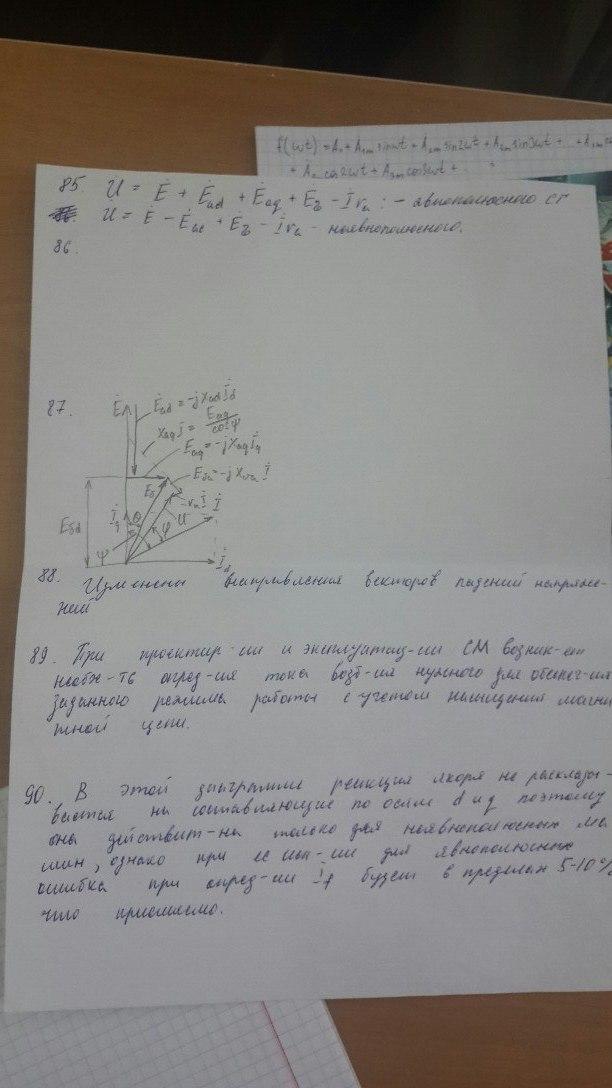 f(ωt) = A₀ + A₁ₘ sinωt + A₂ₘ sin2ωt + A₃ₘ sin3ωt +
+ A₂ cos2ωt + A₃ₘ cos3ωt +
85 U̇ = Ė + Ėad + Ėaq + Ėσ - İra : - явнополюсного СГ
U̇ = Ė - Ėac + Ėσ - İra - неявнополюсного.
86.
87.
Ė Ėad = -jXad İd
Xaq İ = Eaq / cosΨ
Eaq = -jXaq İq
Eσa = -jXσa İ
Eδ -ra İ İ
Eδd İq θ U̇
Ψ φ
İd
88. Изменены направления векторов падений напряже-
ний
89. При проектир-ии и эксплуатац-ии СМ возник-ет
необх-ть опред-ия тока возб-ия нужного для обеспеч-ия
заданного режима работы с учетом насыщения магни
тной цепи.
90. В этой диаграмме реакция якоря не расклады-
вается на составляющие по осям d и q поэтому
она действит-на только для неявнополюсных ма
шин, однако при ее исп-ии для явнополюсных
ошибка при опред-ии If будет в пределах 5-10%
что приемлемо.